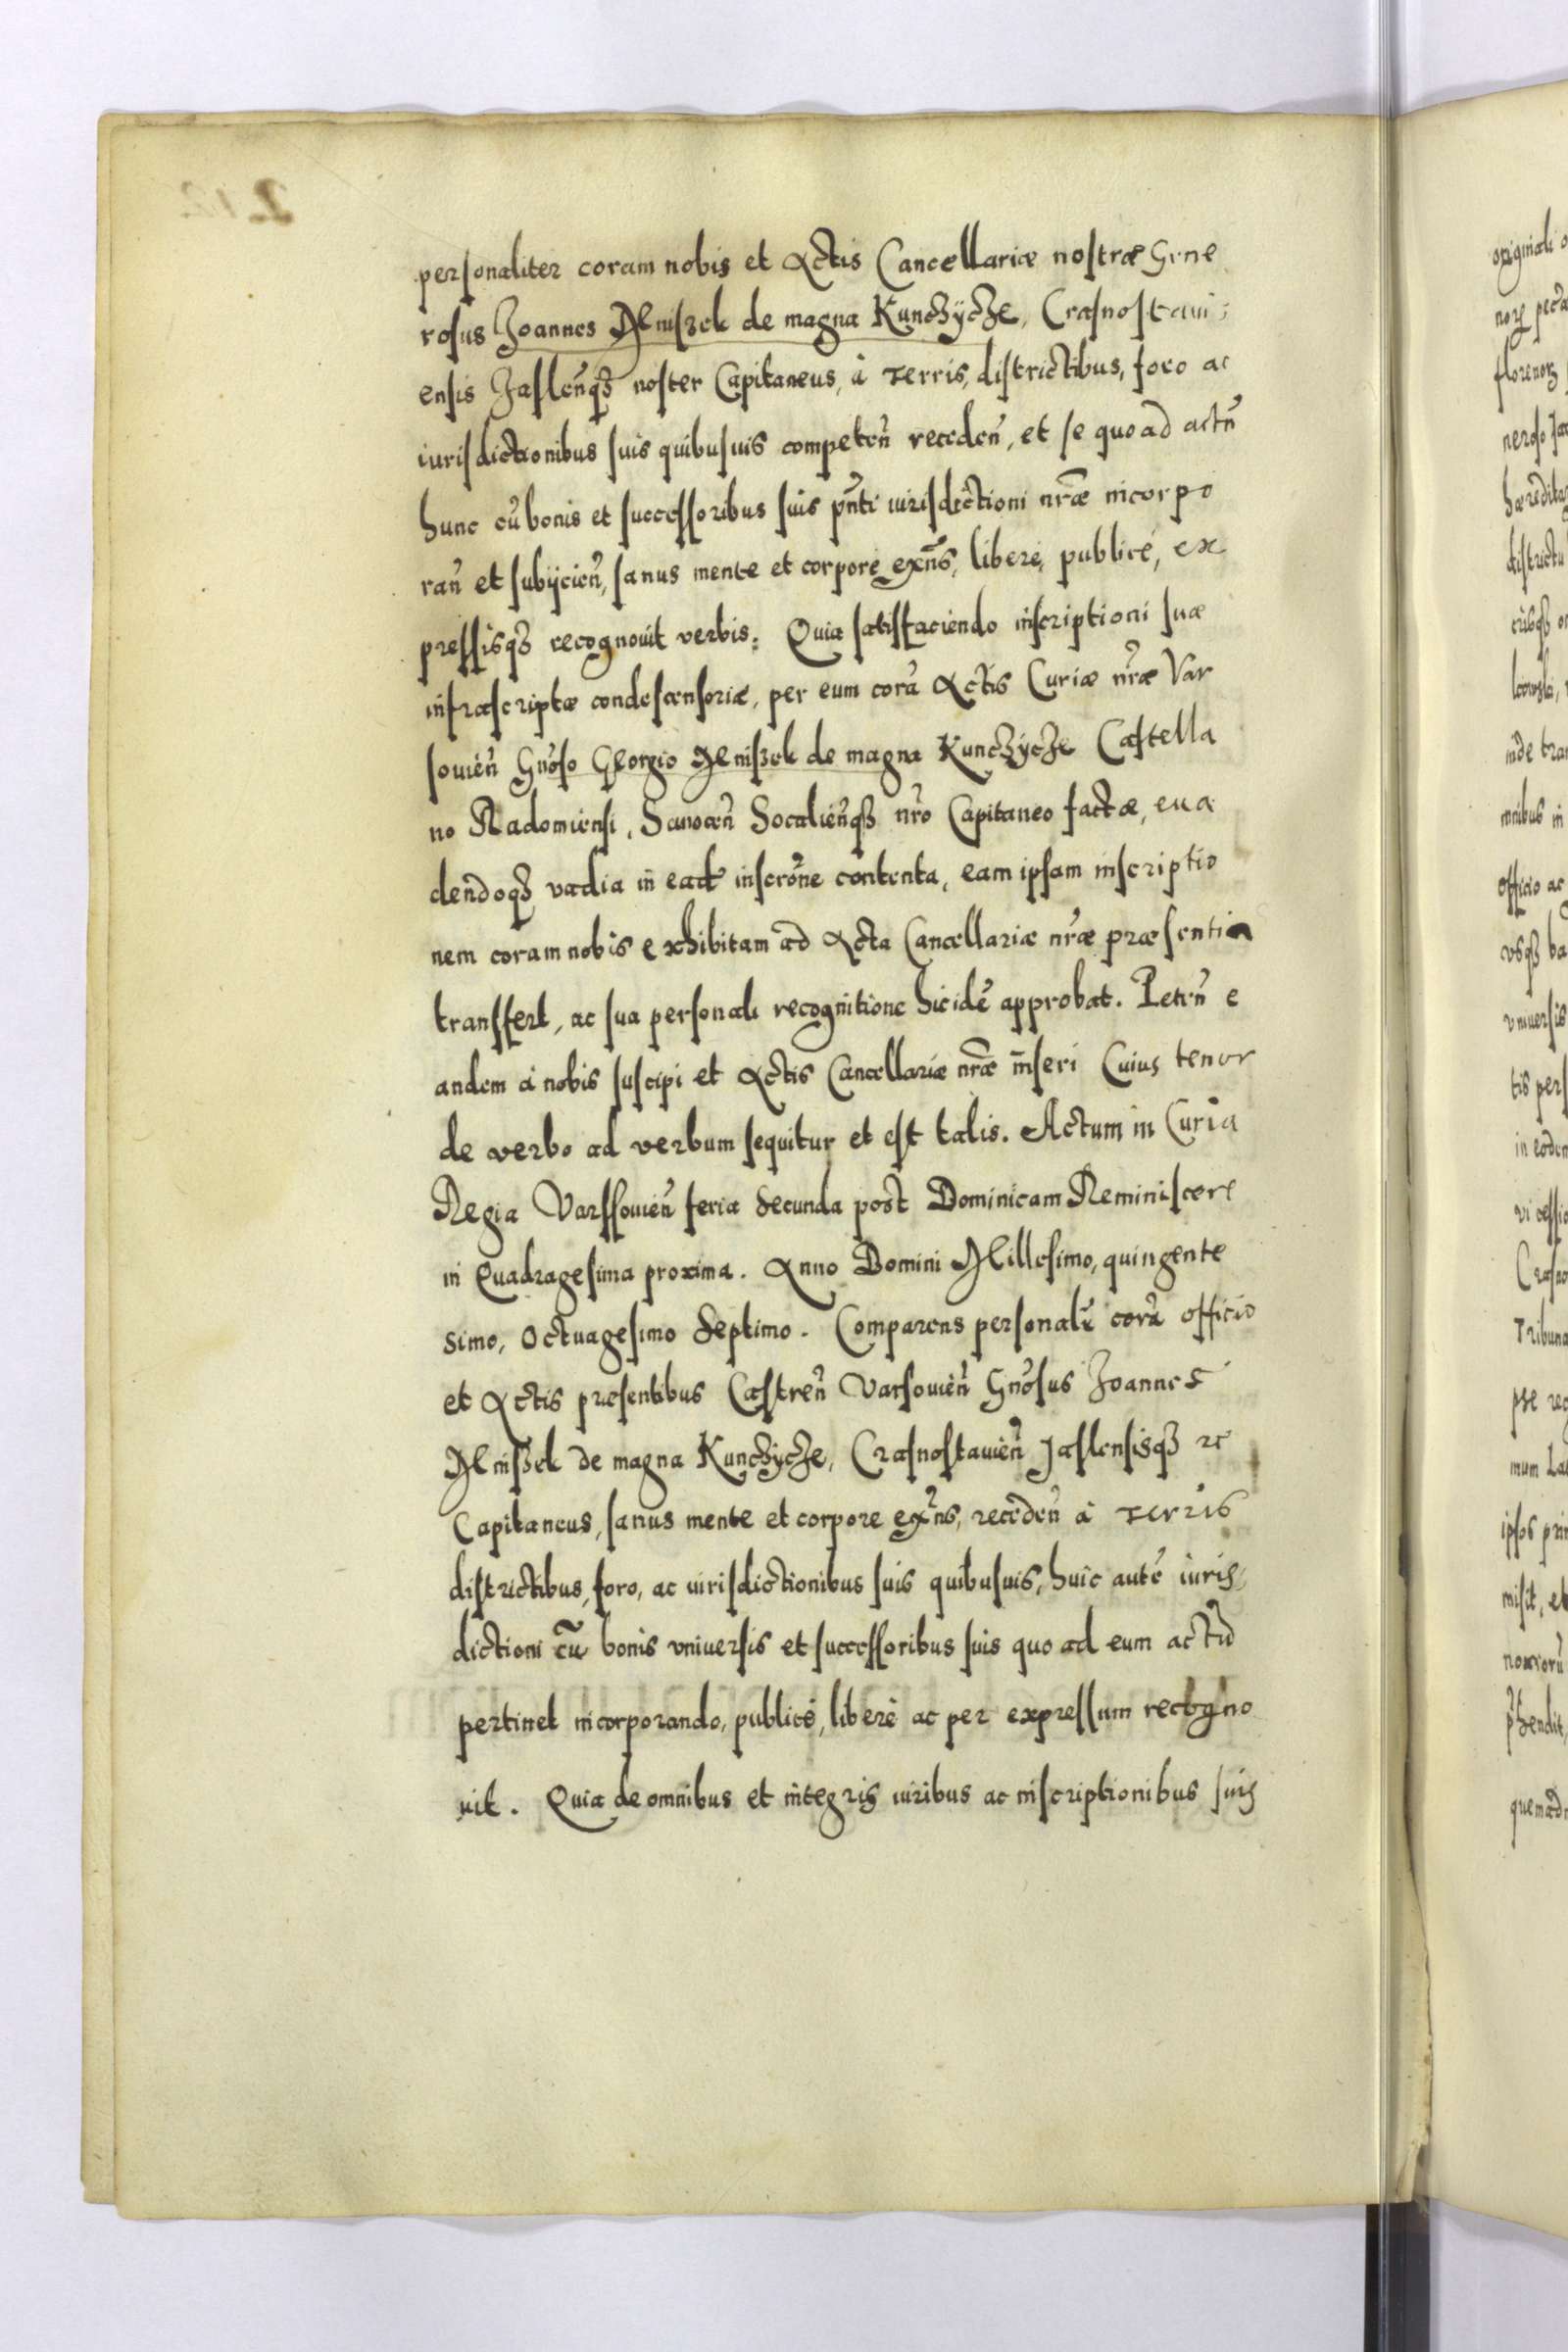 personaliter coram nobis et Actis Cancellariæ nostræ Gene
rosus Joannes Mniszek de magna Kunczÿcze, Crasnostaui-
ensis Jaslen̄qꝫ noster Capitaneus, à Terris, districtibus, foro ac
iurisdictionibus suis quibusuis competen̄ receden̄, et se quo ad actū
hunc cū bonis et successoribus suis pn̄ti iurisdictioni nr̄æ incorpo
ran̄ et subijcien̄, sanus mente et corpore exn̄s, liberè, publicé, ex
pressisqꝫ recognouit verbis: Quia satisfaciendo inscriptioni suæ
infrascriptæ condescensoriæ, per eum corā Actis Curiæ nr̄æ Var
souien̄ Gn̄oso Georgio Mniszek de magna Kunczÿcze Castella
no Radomiensi, Sanocen̄ Socalien̄qꝫ nr̄o Capitaneo factæ, eua
dendoqꝫ vadia in ead' inscrōne contenta, eam ipsam inscriptio
nem coram nobis exhibitam ad Acta Cancellariæ nr̄æ præsentia
transfert, ac sua personali recognitione hicidē approbat. Peten̄ e
andem à nobis suscipi et Actis Cancellariæ nr̄æ inseri Cuius tenor
de verbo ad verbum sequitur et est talis. Actum in Curia
Regia Varssouien̄ feria Secunda post Dominicam Reminiscere
in Quadragesima proxima. Anno Domini Millesimo, quingente
simo, Octuagesimo Septimo. Comparens personalr̄ corā officio
et Actis presentibus Castren̄ Varsouien̄ Gn̄osus Joannes
Mniszek de magna Kunczÿcze, Crasnostauien̄ Jaslensisqꝫ rc
Capitaneus, sanus mente et corpore exn̄s, receden̄ à Terris
districtibus, foro, ac iurisdictionibus suis quibusuis, huic autē iuris-
dictioni cū bonis vniuersis et successoribus suis quo ad eum actū
pertinet incorporando, publicé, liberè ac per expressum recogno
uit. Quia de omnibus et integris iuribus ac inscriptionibus suis